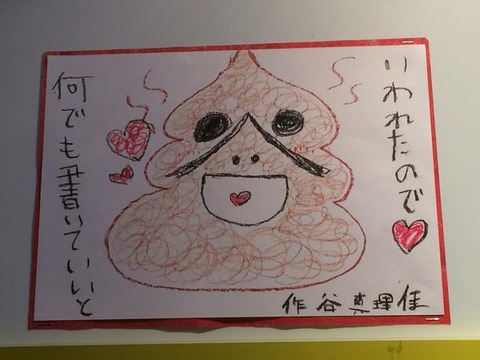 何でも書いていいと
いわれたので♥
作 谷 真理佳